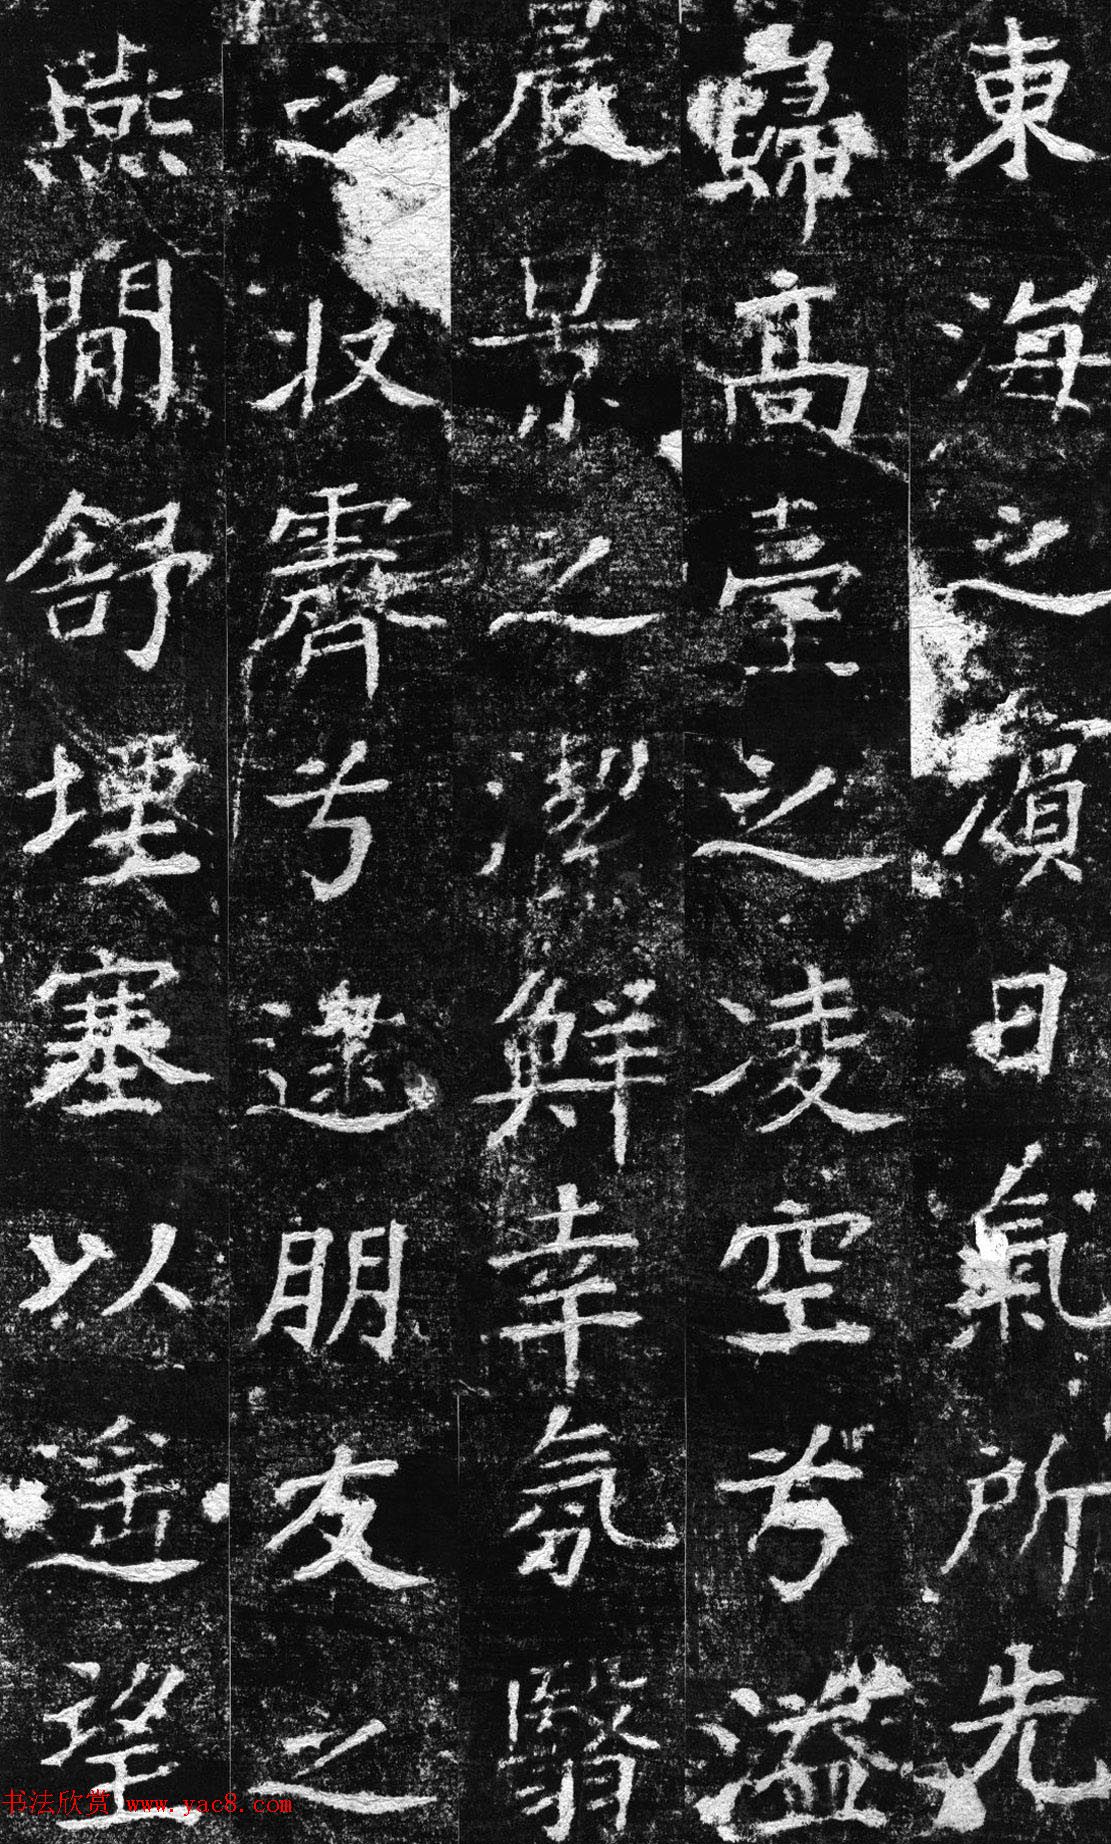 東海之濵日氣所先
歸髙臺之凌空兮溢
晨景之潔鮮幸氛翳
之收霽兮逮朋友之
燕閒舒堙塞以遥望
书法欣赏 www.yac8.com